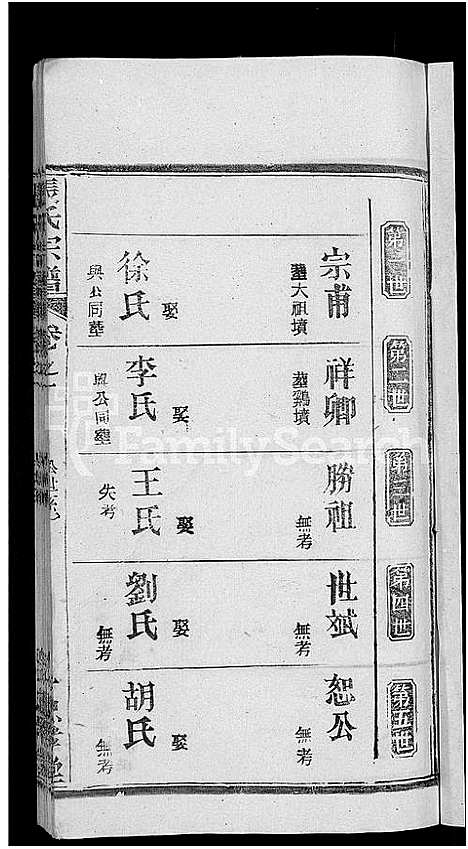 第一世
第二世
第三世
第四世
第五世
宗甫
葬大祖墳
祥卿
葬鷄墳
勝祖
無考
世斌
無考
恕公
無考
娶
徐氏
與公同塋
娶
李氏
與公同塋
娶
王氏
失考
娶
劉氏
無考
娶
胡氏
無考
張氏宗譜
卷之一
FamilySearch